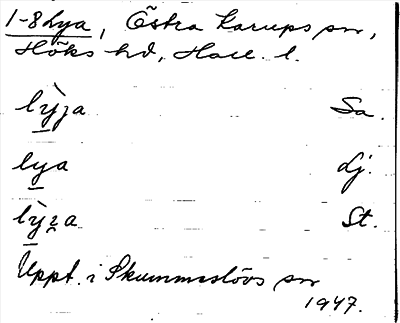 1-8 Lya, Östra Karups sn,
Höks hd, Hall. l.
lỳja Sa.
lya Lj.
lỳɪ̯a St.
Uppt. i Skummeslövs sn
1947.